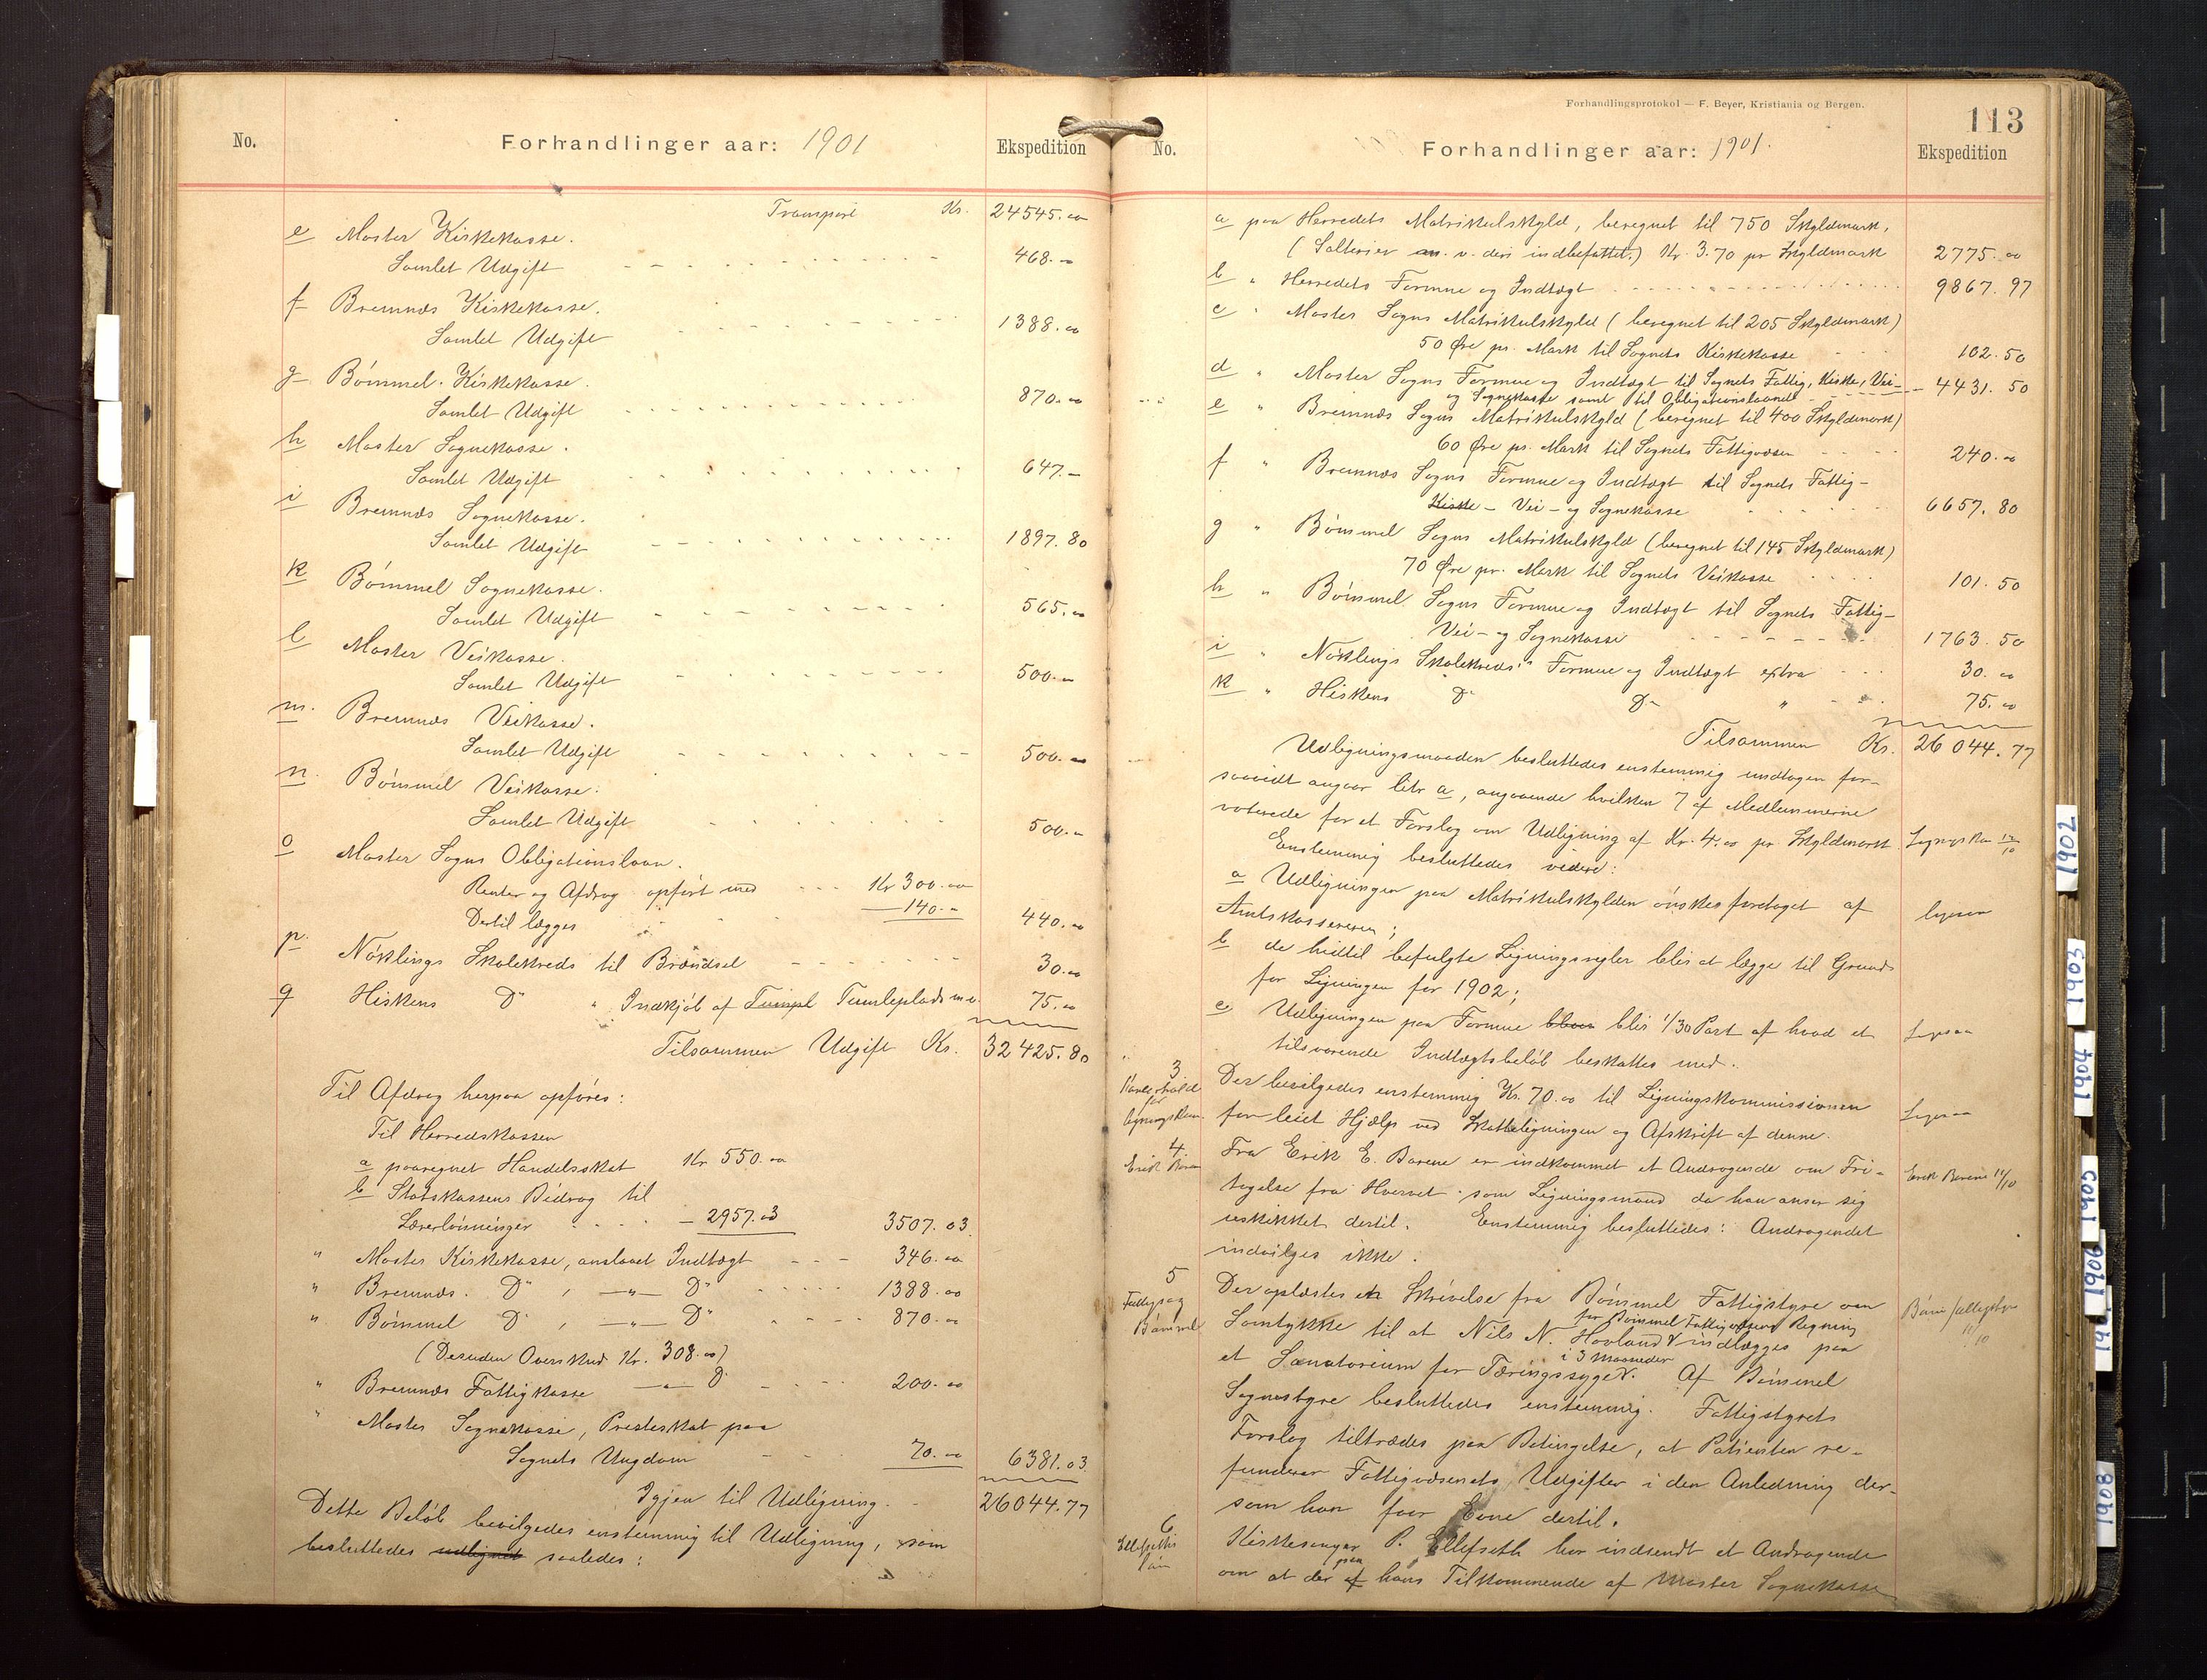 No. Forhandlinger aar: 1901 Ekspedition
Transport Kr. 24545.00
e Moster Kirkekasse.
Samlet Udgift 468.-
f Bremnæs Kirkekasse.
Samlet Udgift 1388.00
g Bömmel Kirkekasse.
Samlet Udgift 870.00
h Moster Sognekasse.
Samlet Udgift 647.-
i Bremnæs Sognekasse.
Samlet Udgift 1897.80
k Bömmel Sognekasse.
Samlet Udgift 565.00
l Moster Veikasse.
Samlet Udgift 500.-
m. Bremnæs Veikasse.
Samlet Udgift 500.00
n. Bömmel Veikasse.
Samlet Udgift 500.-
o Moster Sogns Obligationslaan.
Renter og Afdrag opfört med Kr 300.00
Dertil lægges 140.- 440.00
p. Nöklings Skolekreds til Brændsel 30.00
q Hiskens Do " Indkjöb af Tumpl Tumleplads m.v. 75.00
Tilsammen Udgift Kr. 32425.80
Til Afdrag herpaa opföres:
Til Herredskassen
a paaregnet Handelsskat Kr 550.00
b Statskassens Bidrag til
Lærerlönninger 2957.03 3507.03
" Moster Kirkekasse, anslaaet Indtægt 346.00
" Bremnæs Do , —"— Do 1388.00
" Bömmel Do , —"— Do 870.00
(Desuden Overskud Kr. 308.00)
" Bremnæs Fattigkasse —"— Do 200.00
" Moster Sognekasse, Presteskat paa
Sognets Ungdom 70.00 6381.03
Igjen til Udligning. 26044.77
Dette Beløb bevilgedes enstemmig til Udligning, som
besluttedes udlignet saaledes:
Forhandlingsprotokol — F. Beyer, Kristiania og Bergen.
113
No. Forhandlinger aar: 1901. Ekspedition
a paa Herredets Matrikulskyld, beregnet til 750 Skyldmark,
(Salterier m. v. deri indbefattet.) Kr. 3.70 pr Skyldmark 2775.00
b " Herredets Formue og Indtægt 9867.97
c " Moster Sogns Matrikulskyld (beregnet til 205 Skyldmark)
50 Øre pr. Mark til Sognets Kirkekasse 102.50
d " Moster Sogns Formue og Indtægt til Sognets Fattig, Kirke, Vei- 4431.50
og Sognekasse samt til Obligationslaanet
e " Bremnæs Sogns Matrikulskyld (beregnet til 400 Skyldmark)
60 Øre pr. Mark til Sognets Fattigvæsen 240.00
f " Bremnæs Sogns Formue og Indtægt til Sognets Fattig-
Kirke - Vei - og Sognekasse 6657.80
g " Bömmel Sogns Matrikulskyld (beregnet til 145 Skyldmark)
70 Øre pr. Mark til Sognets Veikasse 101.50
h " Bömmel Sogns Formue og Indtægt til Sognets Fattig-
Vei - og Sognekasse 1763.50
i " Nöklings Skolekreds's Formue og Indtægt extra 30.00
k " Hiskens Do Do " 75.00
Tilsammen Kr. 26044.77
Udligningsmaaden besluttedes enstemmig undtagen for-
saavidt angaar litr a, angaaende hvilken 7 af Medlemmerne
voterede for et Forslag om Udligning af Kr. 4.00 pr. Skyldmark.
Enstemmig besluttedes videre:
a Udligningen paa Matrikulskylden önskes foretaget af
Amtskassereren;
b de hidtil befulgte Ligningsregler blir at lægge til Grund
for Ligningen for 1902;
c Udligningen paa Formue blir 1/30 Part af hvad et
tilsvarende Indtægtsbeløb beskattes med.
3
Der bevilgedes enstemmig Kr. 70.00 til Ligningskommissionen
for leiet Hjælp ved Skatteligningen og Afskrift af denne.
4
Fra Erik E. Barene er indkommet et Andragende om Fri-
tagelse fra Hvervet som Ligningsmand da han anser sig
uskikket dertil. Enstemmig besluttedes: Andragendet
indvilges ikke.
5
Fattigsag
Bömmel
Der oplæstes en Skrivelse fra Bömmel Fattigstyre om
for Bömmel Fattigvæsens Regning
Samtykke til at Nils N. Hovland indlægges paa
i 3 Maaneder
et Sanatorium for Tæringssyge. Af Bömmel
Sognestyre besluttedes enstemmig: Fattigstyrets
Forslag tiltrædes paa Betingelse, at Patienten re-
funderer Fattigvæsenets Udgifter i den Anledning der-
som han faar Evne dertil.
6
Kirkesanger P. Ellefseth har indsendt et Andragende
paa
om at der af hans Tilkommende af Moster Sognekasse
1902
1903
1904
1905
1906
1908